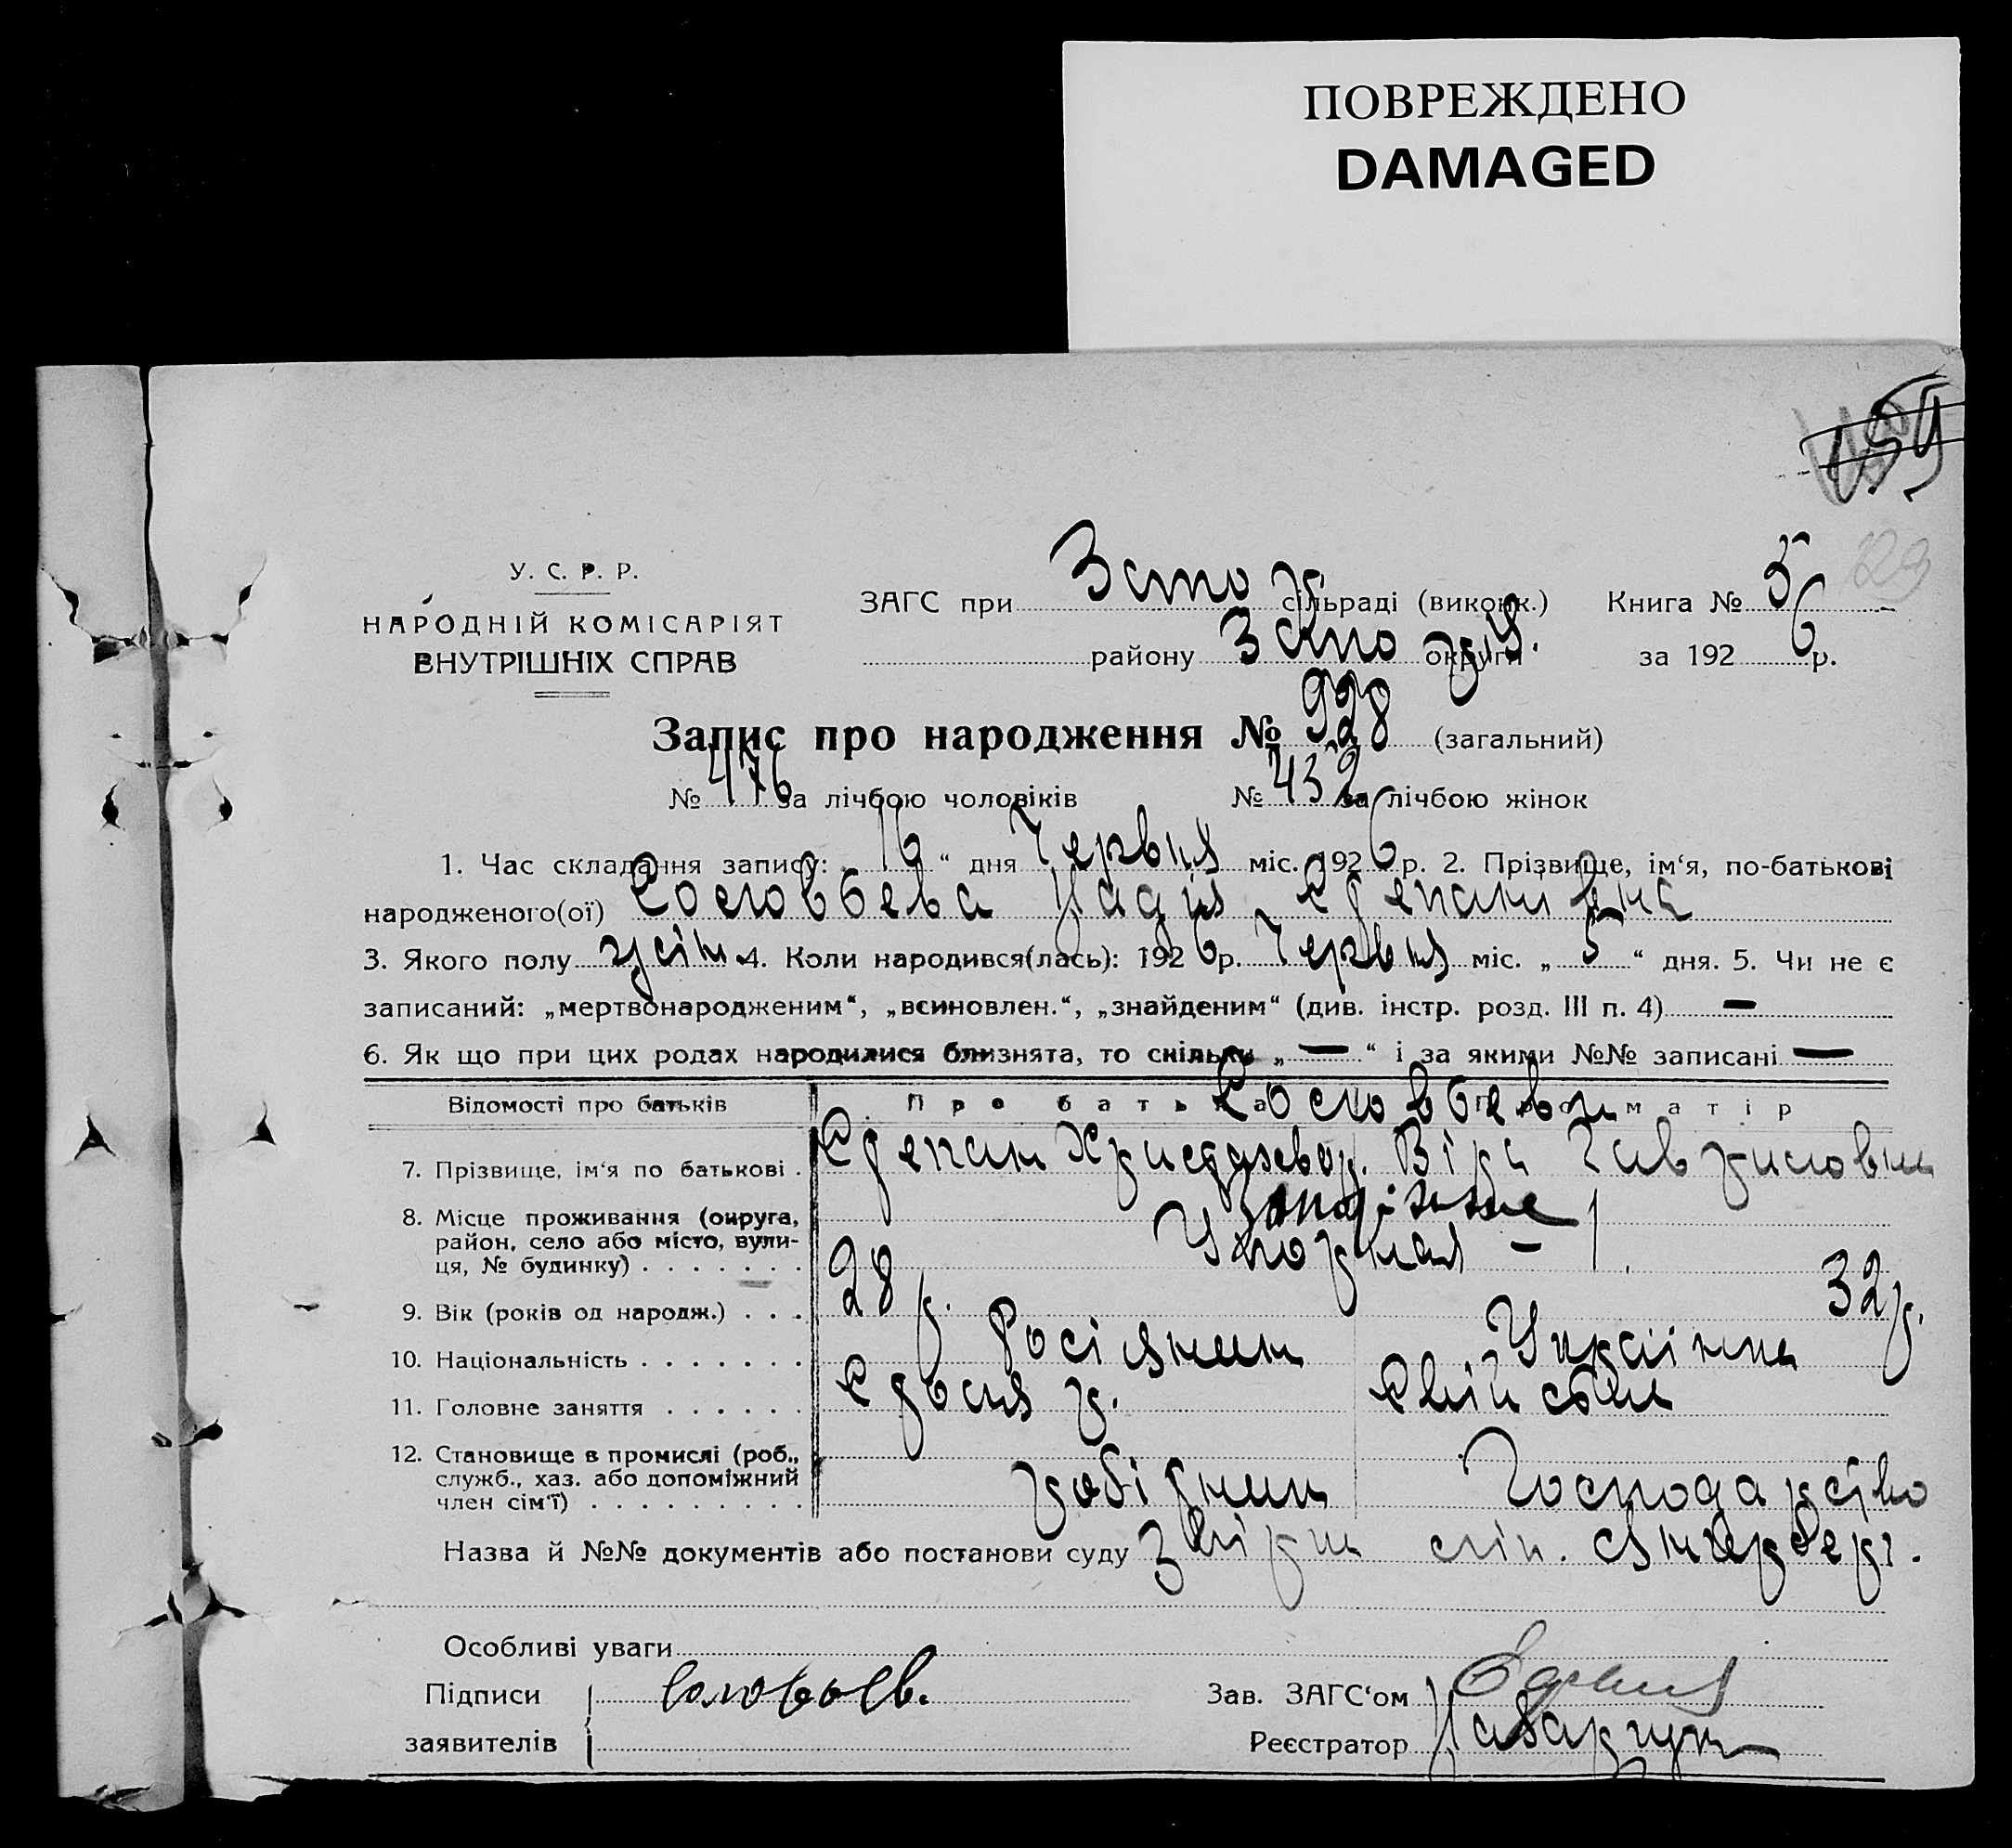 ПОВРЕЖДЕНО
DAMAGED
159
129
У. С. Р. Р.
НАРОДНІЙ КОМІСАРІЯТ
ВНУТРІШНІХ СПРАВ
ЗАГС при сільраді (виконк.) Книга № 5
району округи за 1926 р.
Запис про народження № 928 (загальний)
№ 476 за лічбою чоловіків № 432 за лічбою жінок
1. Час складання запису: „16“ дня Червня міс. 1926 р. 2. Прізвище, ім‘я, по-батькові
народженого(ої) Соловьева Надія Степанівна
3. Якого полу жін. 4. Коли народився(лась): 1926 р. Червня міс. „5“ дня. 5. Чи не є
записаний: „мертвонародженим“, „всиновлен.“, „знайденим“ (див. інстр. розд. III п. 4) —
6. Як що при цих родах народилися близнята, то скільки „—“ і за якими №№ записані —
Відомості про батьків Про батька Про матір
Соловьеви
7. Прізвище, ім‘я по батькові . Степан Христофор. Віра Гавриловна
8. Місце проживання (округа, район, село або місто, вулиця, № будинку) . . . . . . .
9. Вік (років од народж.) . . . 28 р. 32 р.
10. Національність . . . . . . . Росіянин Українка
11. Головне заняття . . . . . . Столяр. Хатнє
12. Становище в промислі (роб., служб., хаз. або допоміжний член сім‘ї) . . . . . . . . . робітник Господарство
Назва й №№ документів або постанови суду
Особливі уваги
Підписи заявителів Соловьев.
Зав. ЗАГС‘ом
Реєстратор